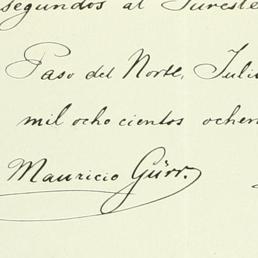 segundos al Sureste
Paso del Norte, Julio
mil ochocientos ochen
Mauricio Gürr.